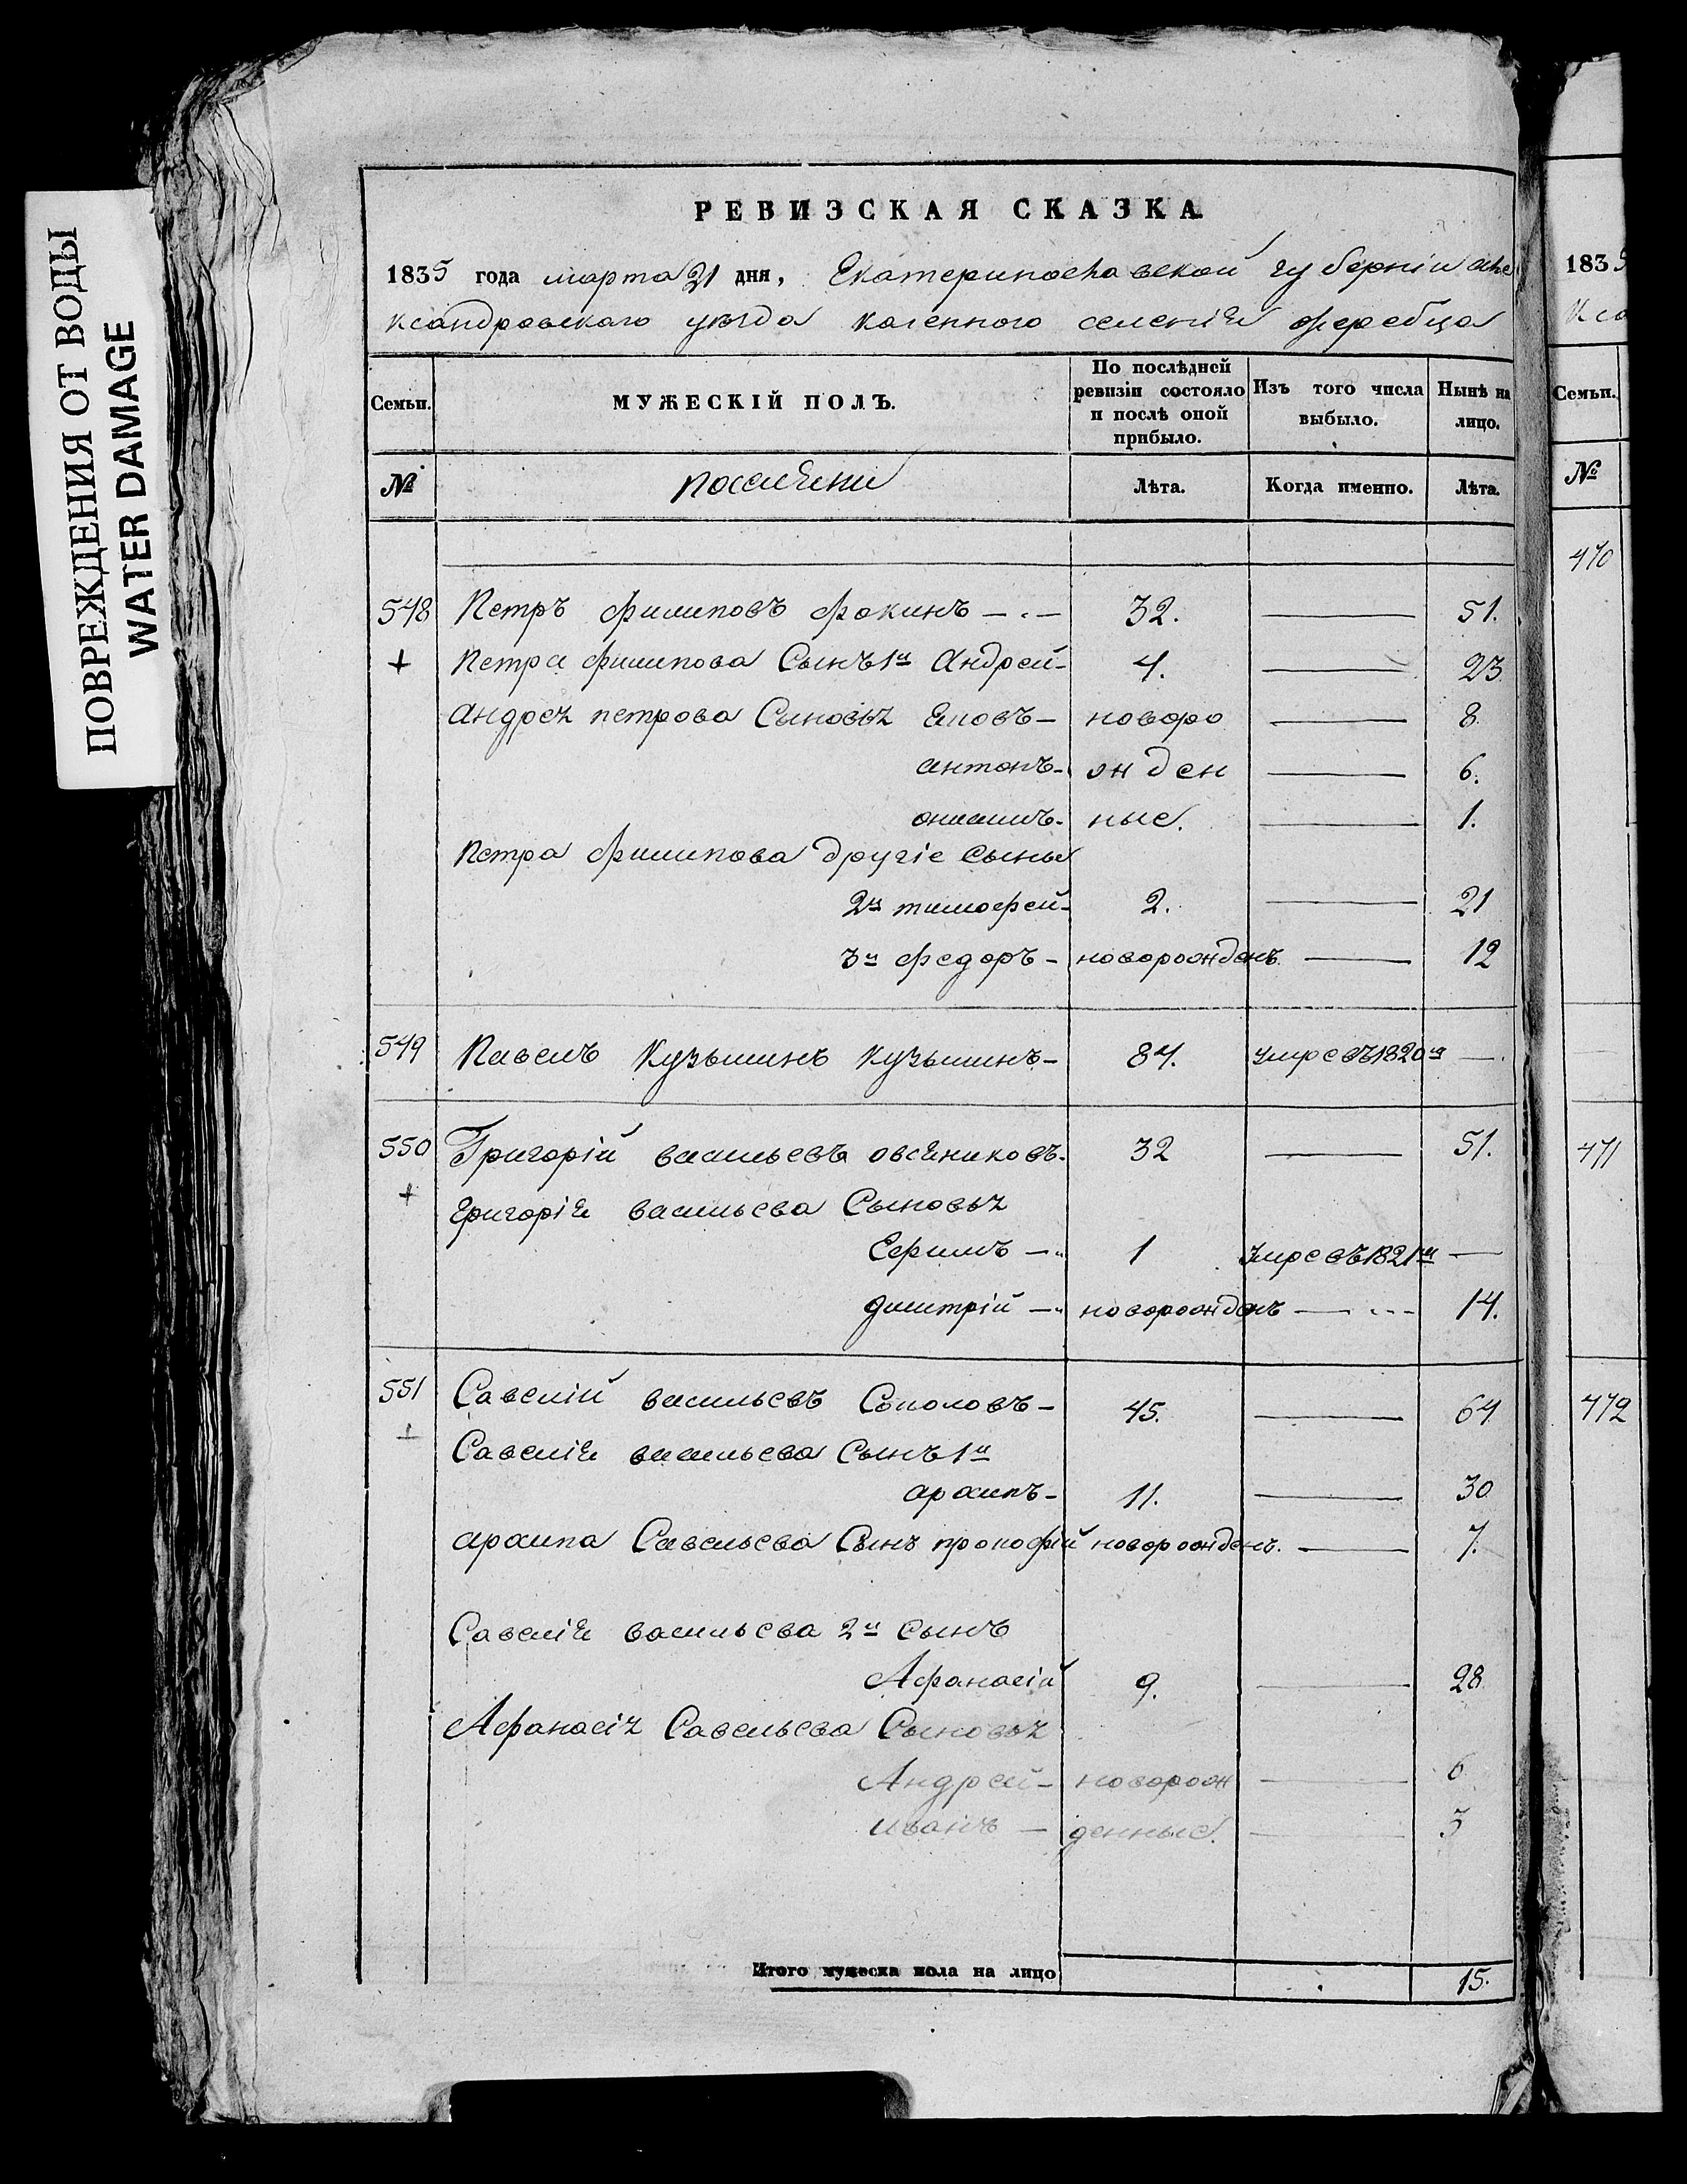 ПОВРЕЖДЕНИЯ ОТ ВОДЫ
WATER DAMAGE
РЕВИЗСКАЯ СКАЗКА.
1835 года марта 21 дня, Екатеринославской губерніи але
ксандровскаго уѣзда казенного селенія жеребца
Семьи. МУЖЕСКІЙ ПОЛЪ. По послѣдней ревизіи состояло и послѣ оной прибыло. Изъ того числа выбыло. Нынѣ на лицо.
№ поселяни Лѣта. Когда именно. Лѣта.
548 Петръ филиповъ фокинъ — 32. — 51.
+ петра филипова Сынъ 1й Андрей — 4. — 23
андрея петрова Сыновья — новоро — 8
антонъ — жден — 6.
ные. — 1.
петра филипова другіе сыны
2й тимофей — 2. — 21
3й федоръ — новорожденъ — 12
549 Павелъ Кузьминъ Кузьминъ — 84. умре въ 1820м —
550 Григорій васильевъ овсяниковъ. 32 — 51.
+ григорія васильева Сыновья
Ефимъ — 1 умре въ 1821м —
димитрій — новорожденъ — 14.
551 Савелій васильевъ Соколовъ — 45. — 64
+ Савелія васильева Сынъ 1й
архипъ — 11. — 30
архипа Савельева Сынъ прокофій новорожденъ. — 7.
Савелія васильева 2й сынъ
Афанасій 9. — 28
Афанасія Савельева Сыновья
Андрей — новорож — 6
иванъ — денные. — 3
Итого мужеска пола на лицо 15.
1835
ксо
Семьи.
№
470
471
472